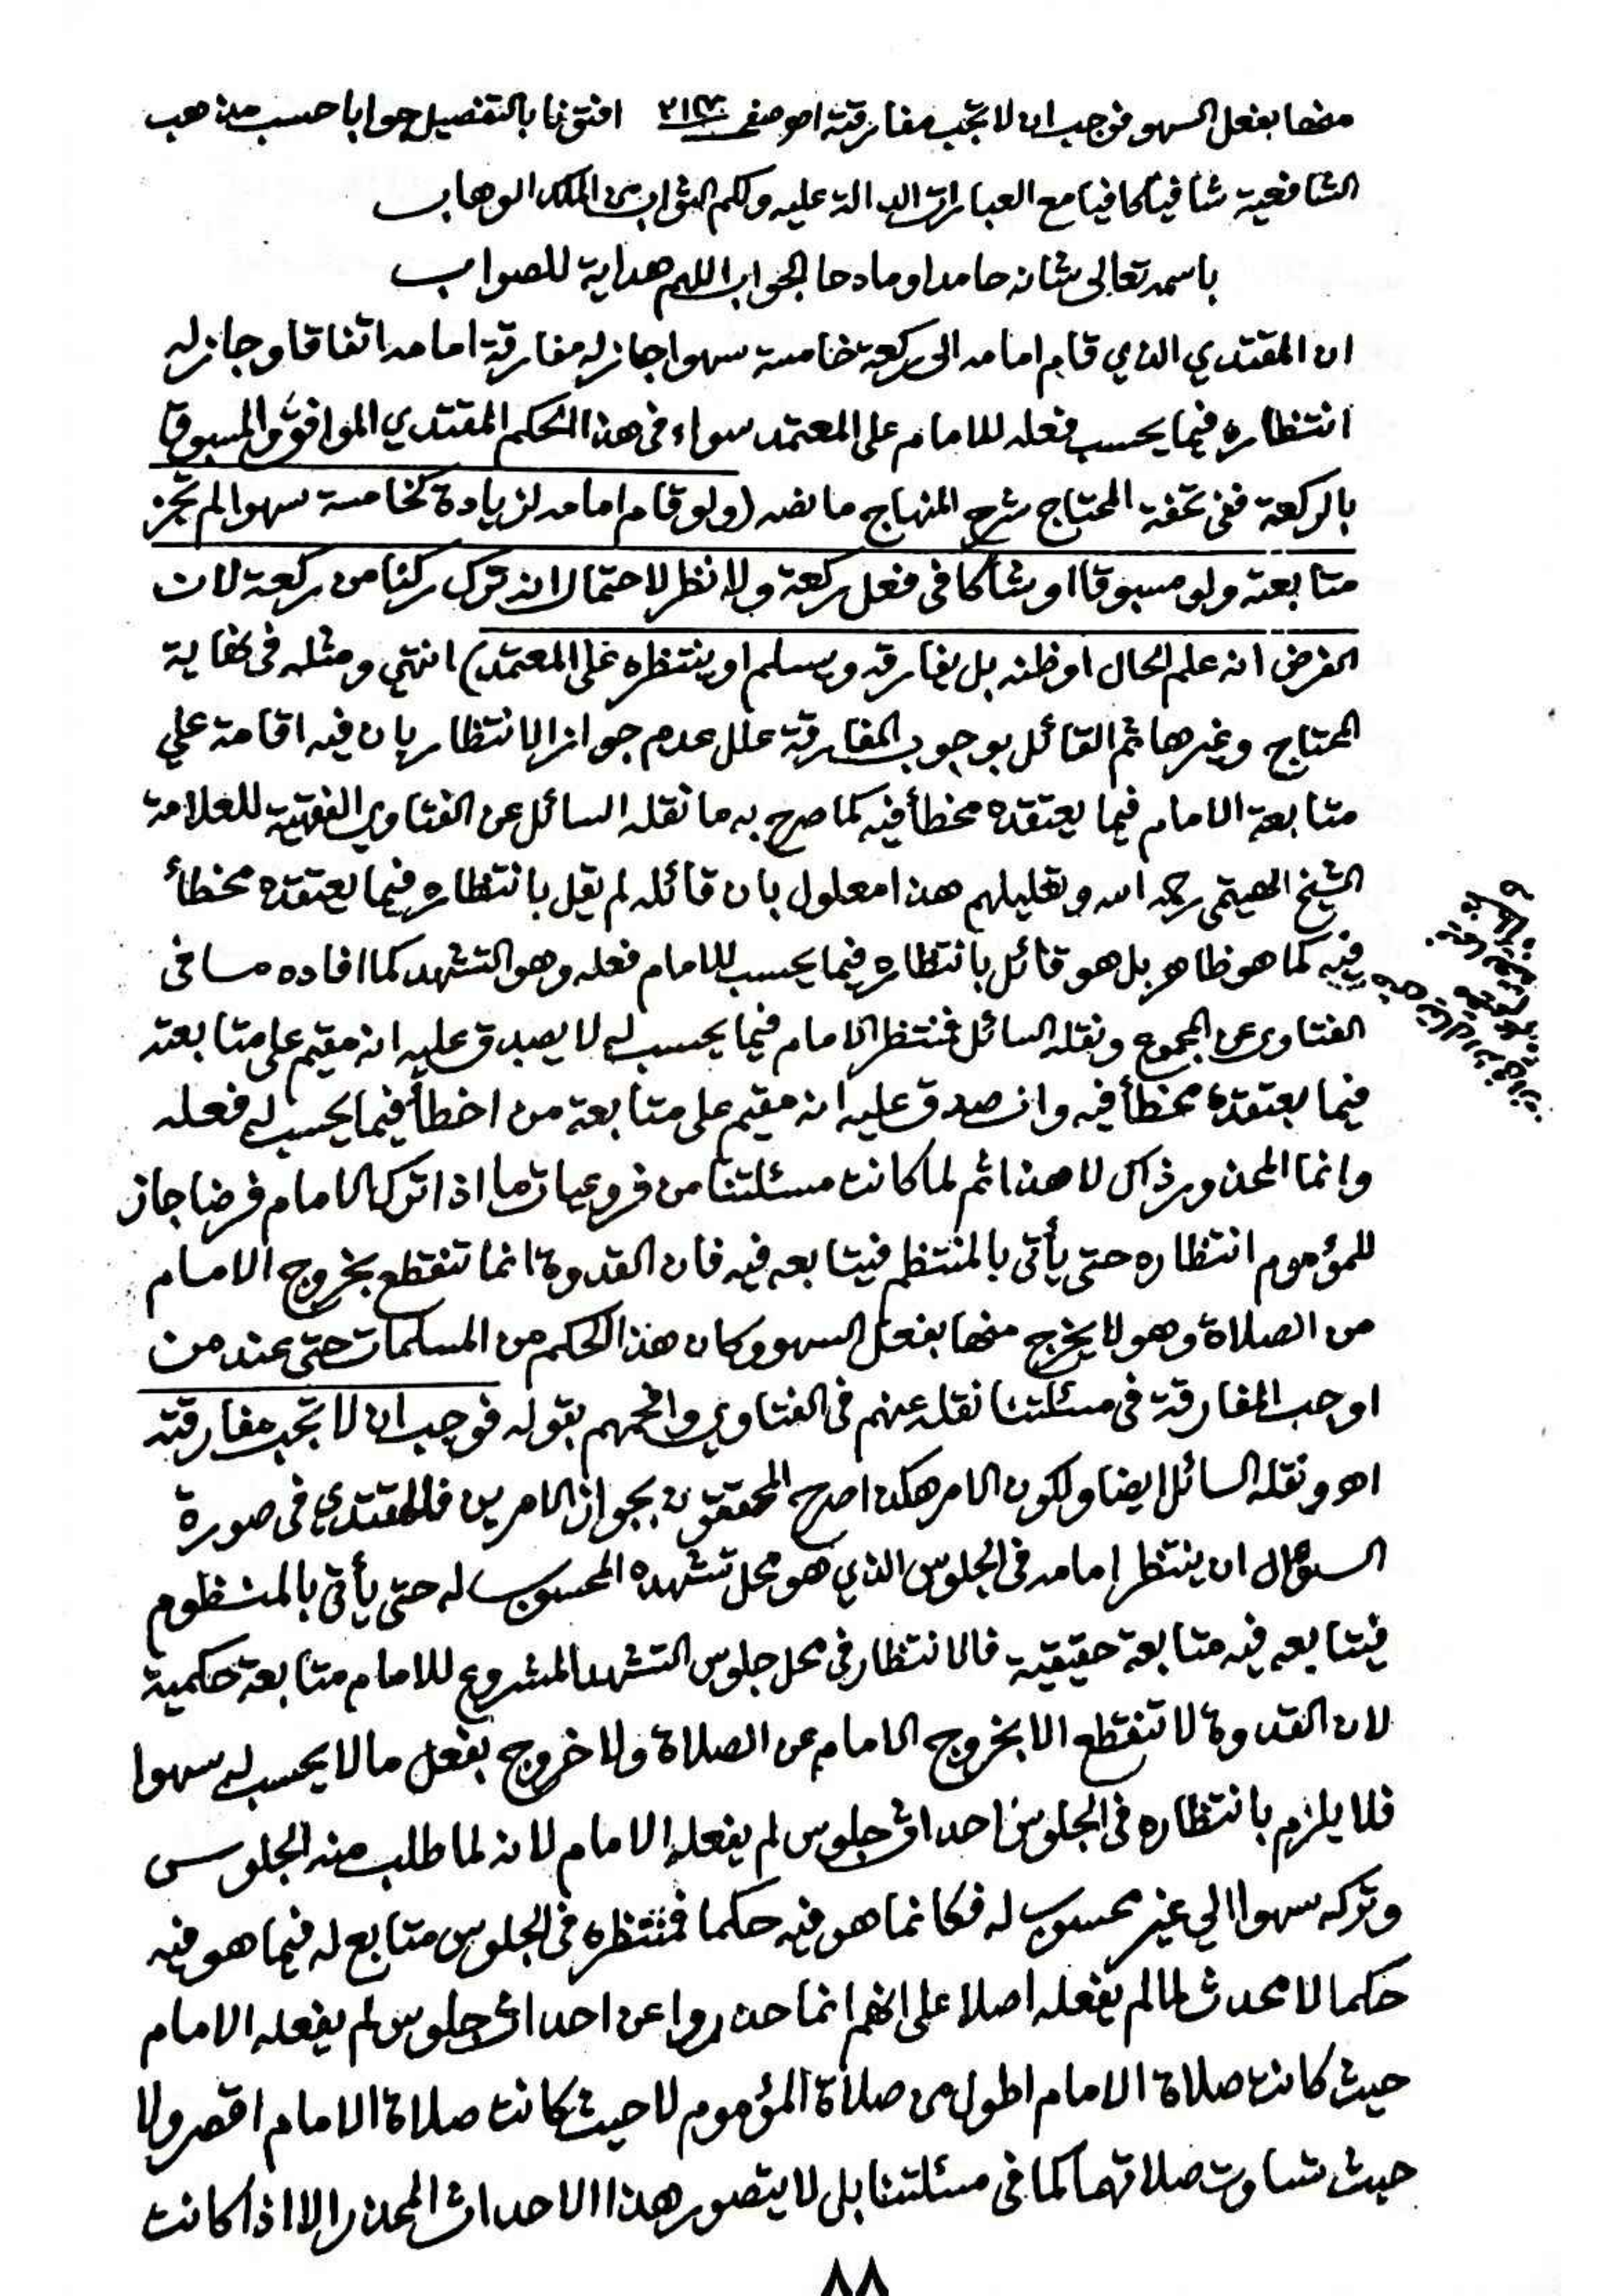 منها بفعل السهو فوجب ان لا تجب مفارقته اهو صفحـ افتونا بالتفصيل جوابا حسب مذهب
الشافعية شافيا كافيا مع العبارات الدالة عليه ولكم الثواب من الملك الوهاب
باسمه تعالى شانه حامدا ومادحا الجواب اللهم هداية للصواب
ان المقتدي الذي قام امامه الى ركعة خامسة سهوا جاز له مفارقة امامه اتفاقا وجاز له
انتظاره فيما يحسب فعله للامام على المعتمد سواء في هذا الحكم المقتدي الموافق والمسبوق
بالركعة ففي تحفة المحتاج شرح المنهاج ما نصه (ولو قام امامه لزيادة كخامسة سهوا لم تجز
متابعته ولو مسبوقا او شاكا في فعل ركعة ولا نظر لاحتمال انه ترك ركنا من ركعة لان
الفرض انه علم الحال او ظنه بل يفارقه ويسلم او ينتظره على المعتمد) انتهي ومثله في نهاية
المحتاج وغيرها ثم القائل بوجوب المفارقة علل عدم جواز الانتظار بان فيه اقامة علي
متابعة الامام فيما يعتقده مخطأ فيه كما صرح به ما نقله السائل عن الفتاوي الفقهية للعلامة
الشيخ الهيتمي رحمه الله وتعليلهم هذا معلول بان قائله لم يقل بانتظاره فيما يعتقده مخطأ
فيه كما هو ظاهر بل هو قائل بانتظاره فيما يحسب للامام فعله وهو التشهد كما افاده ما في
الفتاوى عن المجموع ونقله السائل فمنتظر الامام فيما يحسب له لا يصدق عليه انه مقيم على متابعته
فيما يعتقده مخطأ فيه وان صدق عليه انه مقيم على متابعة من اخطأ فيما يحسب له فعله
وانما المحذور ذاك لا هذا ثم لما كانت مسئلتنا من فروعيات ما اذا ترك الامام فرضا جاز
للمؤموم انتظاره حتى يأتي بالمنتظم فيتابعه فيه فان القدوة انما تنقطع بخروج الامام
من الصلاة وهو لا يخرج منها بفعل السهو وكان هذا الحكم من المسلمات حتى عند من
اوجب المفارقة في مسئلتنا نقله عنهم في الفتاوي والحمهم بقوله فوجب ان لا تجب مفارقته
اهو ونقله السائل ايضا ولكون الامر هكذا صرح المحققون بجواز الامرين فللمقتدي في صورة
السؤال ان ينتظر امامه في الجلوس الذي هو محل تشهده المحسوب له حتى يأتي بالمنظوم
فيتابعه فيه متابعة حقيقية فالانتظار في محل جلوس التشهد المشروع للامام متابعة حكمية
لان القدوة لا تنقطع الا بخروج الامام عن الصلاة ولا خروج بفعل ما لا يحسب له سهوا
فلا يلزم بانتظاره في الجلوس احداث جلوس لم يفعله الامام لانه لما طلب منه الجلوس
وتركه سهوا الي غير محسوب له فكانما هو فيه حكما فمنتظره في الجلوس متابع له فيما هو فيه
حكما لا محدث لما لم يفعله اصلا على انهم انما حذروا عن احداث جلوس لم يفعله الامام
حيث كانت صلاة الامام اطول من صلاة المؤموم لا حيث كانت صلاة الامام اقصر ولا
حيث تساوت صلاتهما كما في مسئلتنا بل لا يتصور هذا الاحداث المحذر الا اذا كانت
٨٨